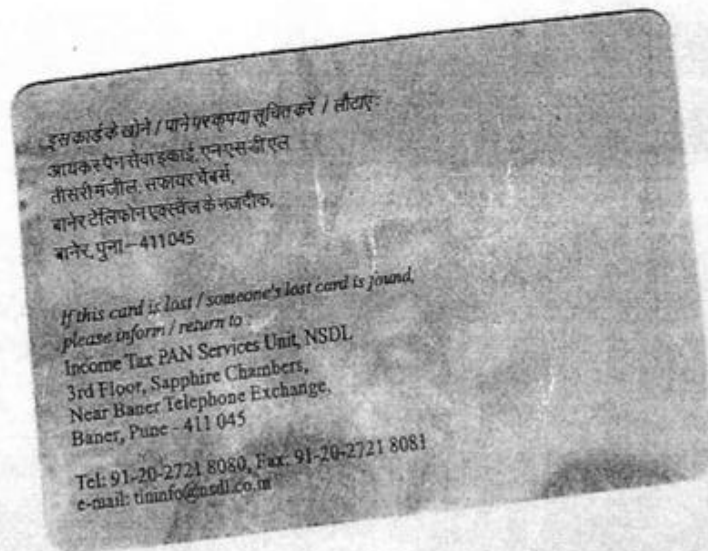 इस कार्ड के खोने / पाने पर कृपया सूचित करें / लौटाएं :
आयकर पैन सेवा इकाई, एनएसडीएल
तीसरी मंजील, सफायर चेंबर्स,
बानेर टेलिफोन एक्स्चेंज के नजदीक,
बानेर, पुना – 411045
If this card is lost / someone's lost card is found,
please inform / return to :
Income Tax PAN Services Unit, NSDL
3rd Floor, Sapphire Chambers,
Near Baner Telephone Exchange,
Baner, Pune - 411 045
Tel: 91-20-2721 8080, Fax: 91-20-2721 8081
e-mail: tininfo@nsdl.co.in